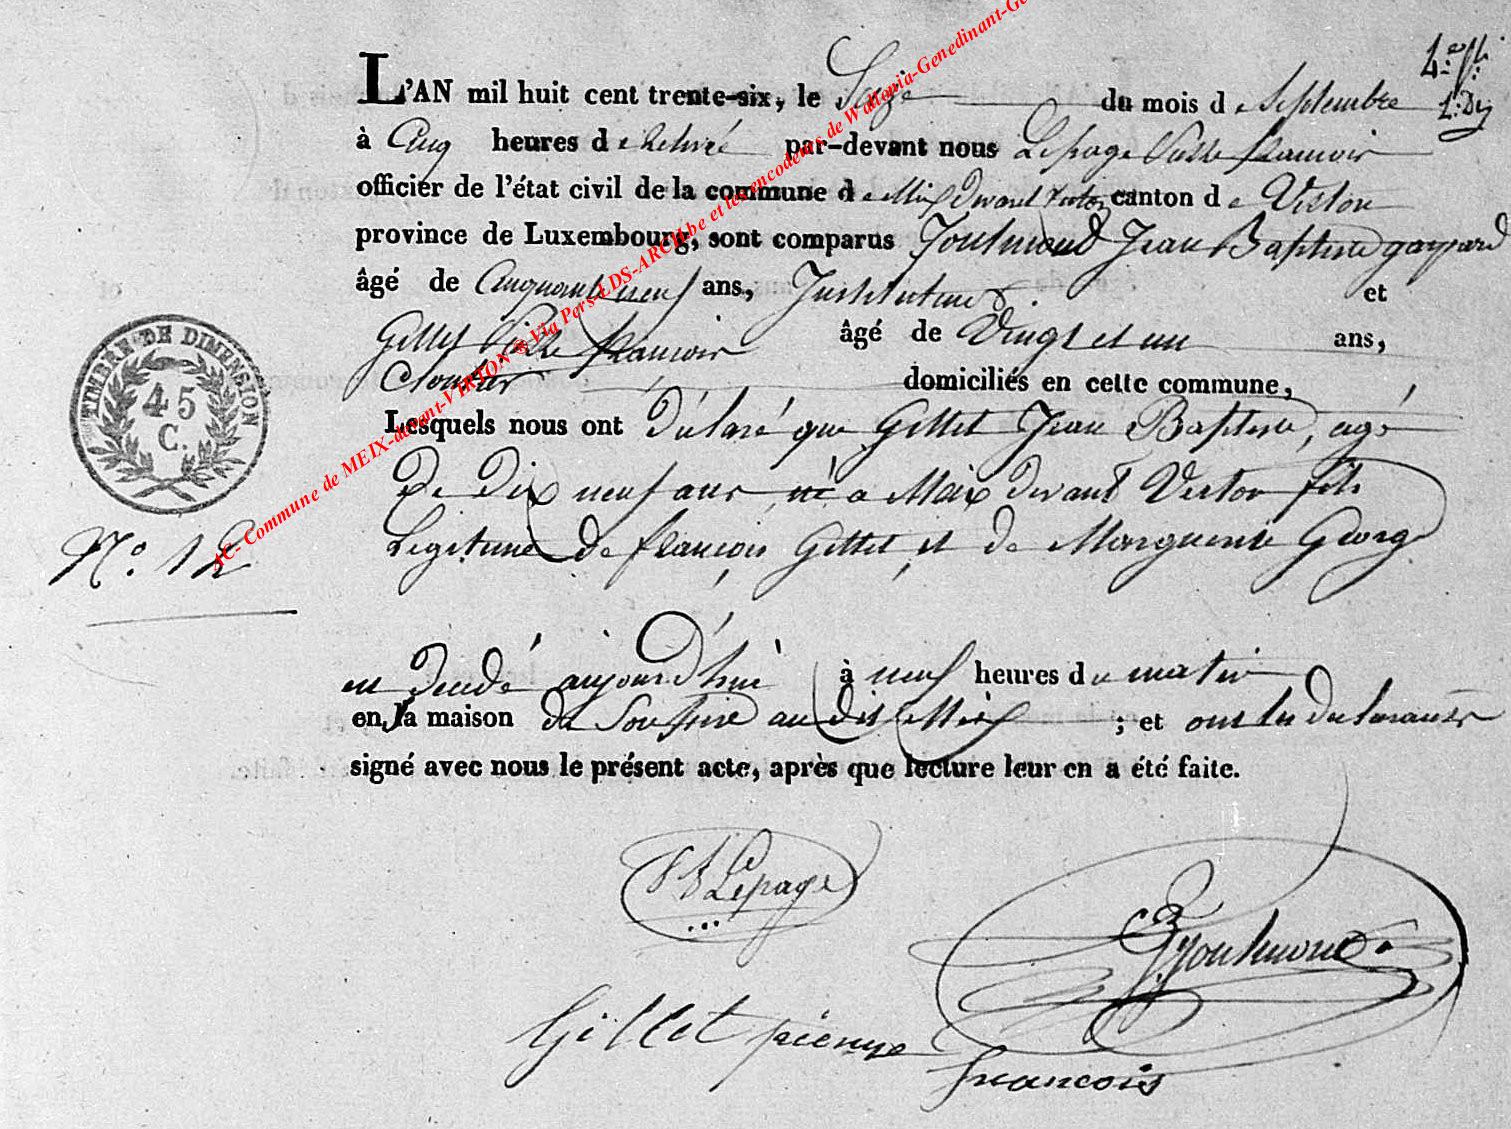 L'AN mil huit cent trente-six, le Seize du mois de Septembre
à Cinq heures de Relevée par-devant nous Lepage francois
officier de l'état civil de la commune de Meix devant Virton canton de Virton
province de Luxembourg, sont comparus Joulmond Jean Baptiste gaspard
âgé de Cinquante neuf ans, Instituteur et
Gillet Pierre francois âgé de Vingt et un ans,
Cloutier domiciliés en cette commune,
Lesquels nous ont Déclaré que Gillet Jean Baptiste, agé
De Dix neuf ans né a Meix devant Virton fils
Legitime de françois Gillet et de Marguerite Georg
est Decedé aujourd'hui à neuf heures du matin
en sa maison au dit Meix ; et ont les declarants
signé avec nous le présent acte, après que lecture leur en a été faite.
TIMBRE DE DIMENSION
45
C.
N.º 12
Lepage
Joulmond
Gillet pierre
francois
AC- Commune de MEIX-devant-VIRTON @ Via Pers-LDS-ARCH.be et les encodeurs de Wallonia-Genedinant-Ge